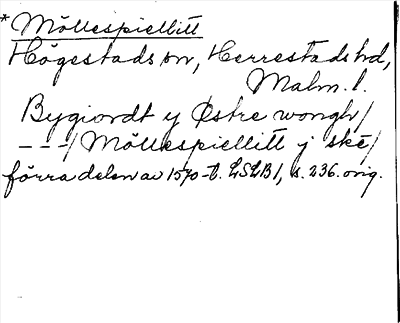 * Möllespiellitt
Högestads sn, Herrestads hd,
Malm. l.
Bygiordt y Østre wongh/
---/Möllespiellitt j ske/
förra delen av 1570-t. LSLB1, s. 236. orig.